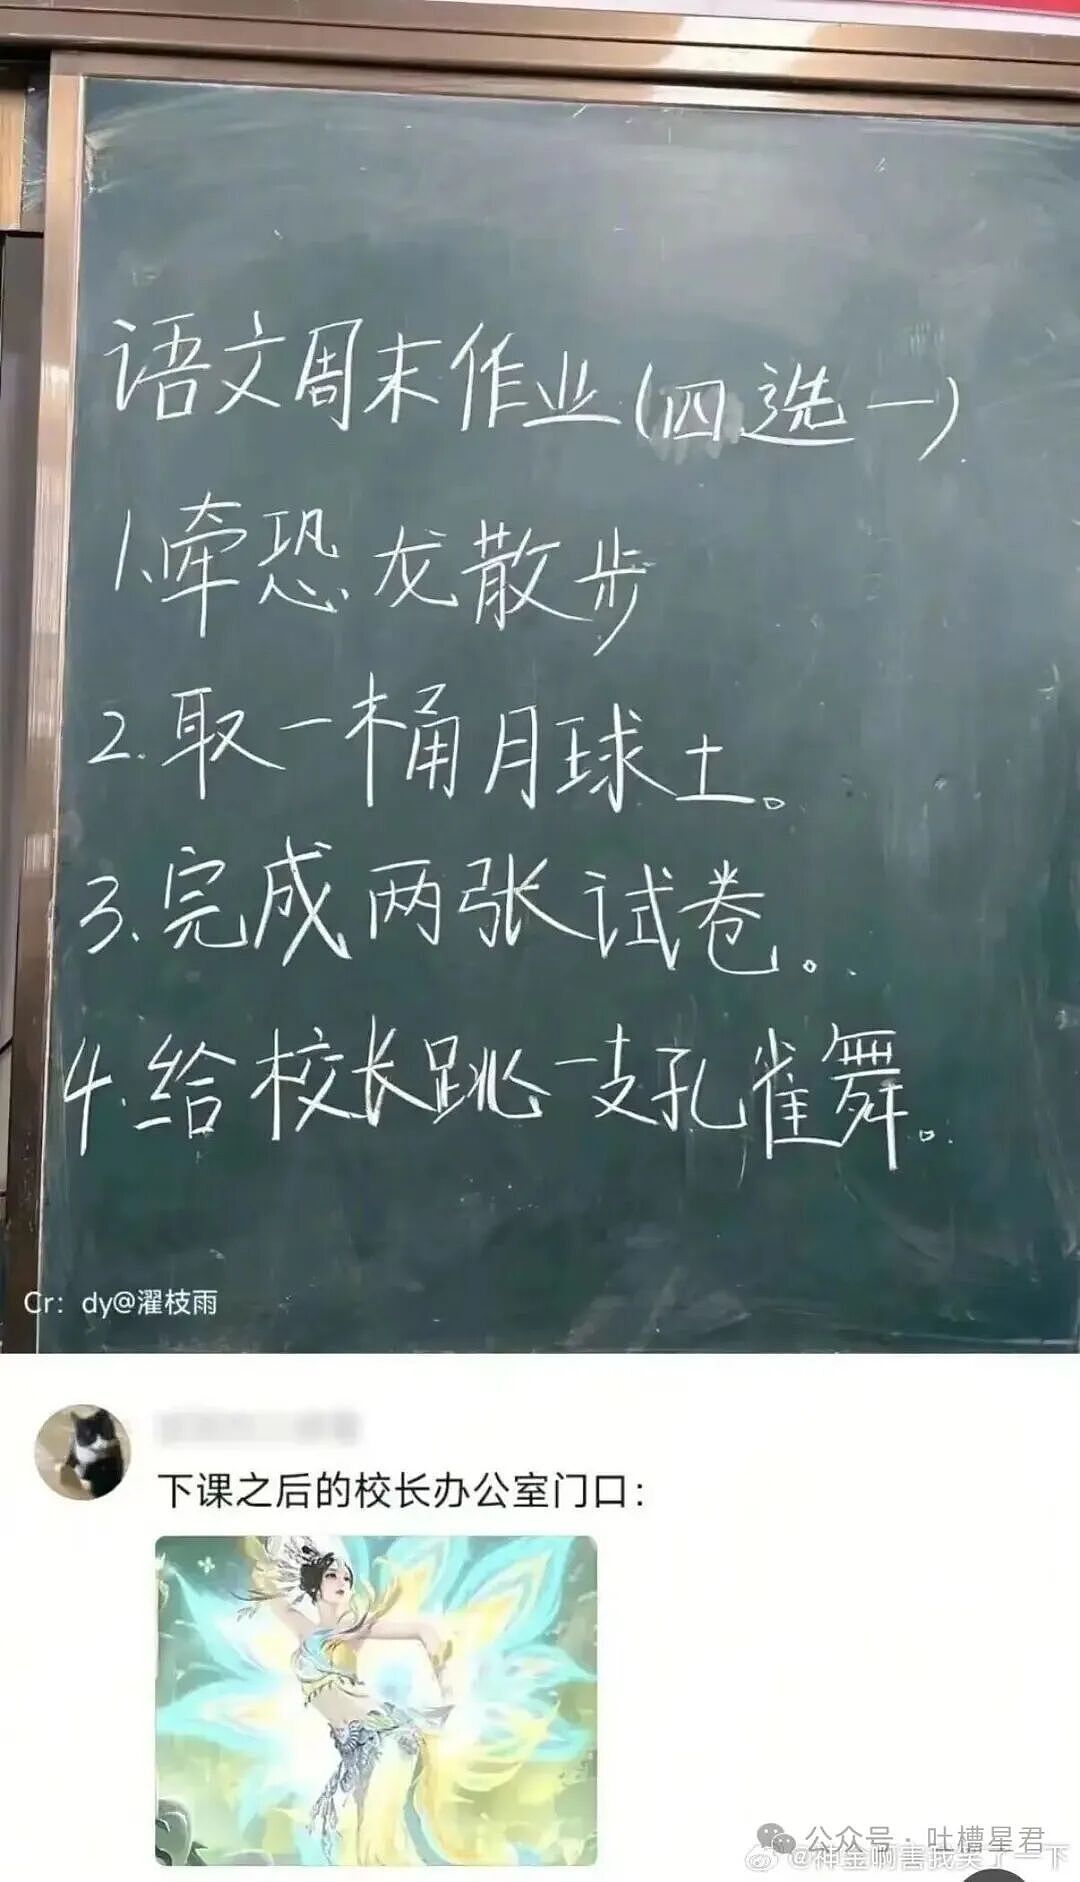 语文周末作业(四选一)
1.牵恐龙散步
2.取一桶月球土。
3.完成两张试卷。
4.给校长跳一支孔雀舞。
Cr: dy@濯枝雨
下课之后的校长办公室门口：
公众号·吐槽星君
@神金啊害我笑了一下